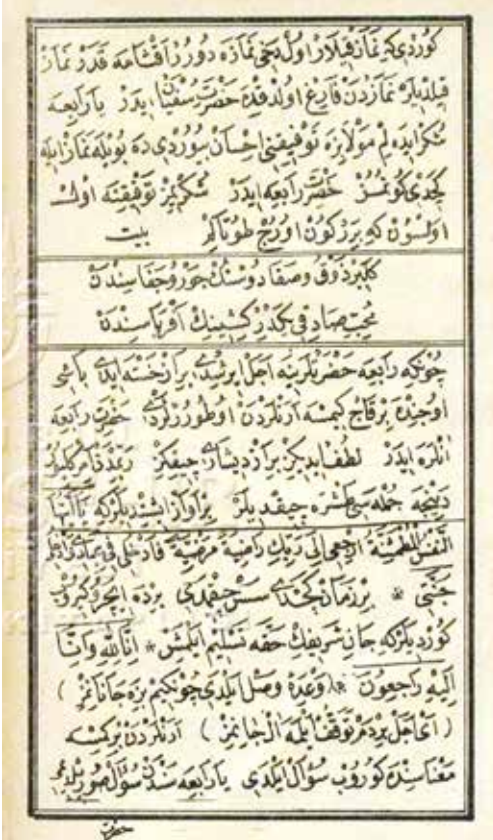 كوردی كه نماز قیلار اول دخی نمازه دورر اقشامه قدر نماز
قیلدیلر نمازدن فارغ اولدقده حضرت سفیان ایدر یا رابعه
شكر ایده لم مولا بزه توفیقنی احسان بیوردی ده بویله نماز ایله
كچدی كونمز حضرت رابعه ایدر شكریمز توفیقنه اول
اولسون كه بر كون اوروج طوتالم بیت
كلیر ذوق و صفا دوستك جور و جفاسندن
محب صادق یكدر كشینك اقرباسندن
چونكه رابعه حضرتلرینه اجل ایریشدی براز خسته ایدی باشی
اوجنده بر قاچ كیمسه ارنلردن اوطوررلردی حضرت رابعه
انلره ایدر لطف ایدیكز براز دیشاری چیقكز
دینجه جمله سی طشره چیقدیلر بر آواز ایشیدیلر كه یا ایتها
النفس المطمئنة ارجعی الی ربك راضیة مرضیة فادخلی فی عبادی وادخلی
جنتی * بر زمان كچدی سس چیقمدی برده ایچرو كیروب
كوردیلر كه جان شریفك حقه تسلیم ایلمش * انا لله وانا
الیه راجعون * (وعده وصل ایلدی چونكیم بزه جانانمز)
(ای اجل بر دم توقف ایلمه آل جانمز) ارنلردن بر كمسه
معناسنده كوروب سؤال ایلدی یا رابعه سندن سؤال صوریلدیمی
حضرت